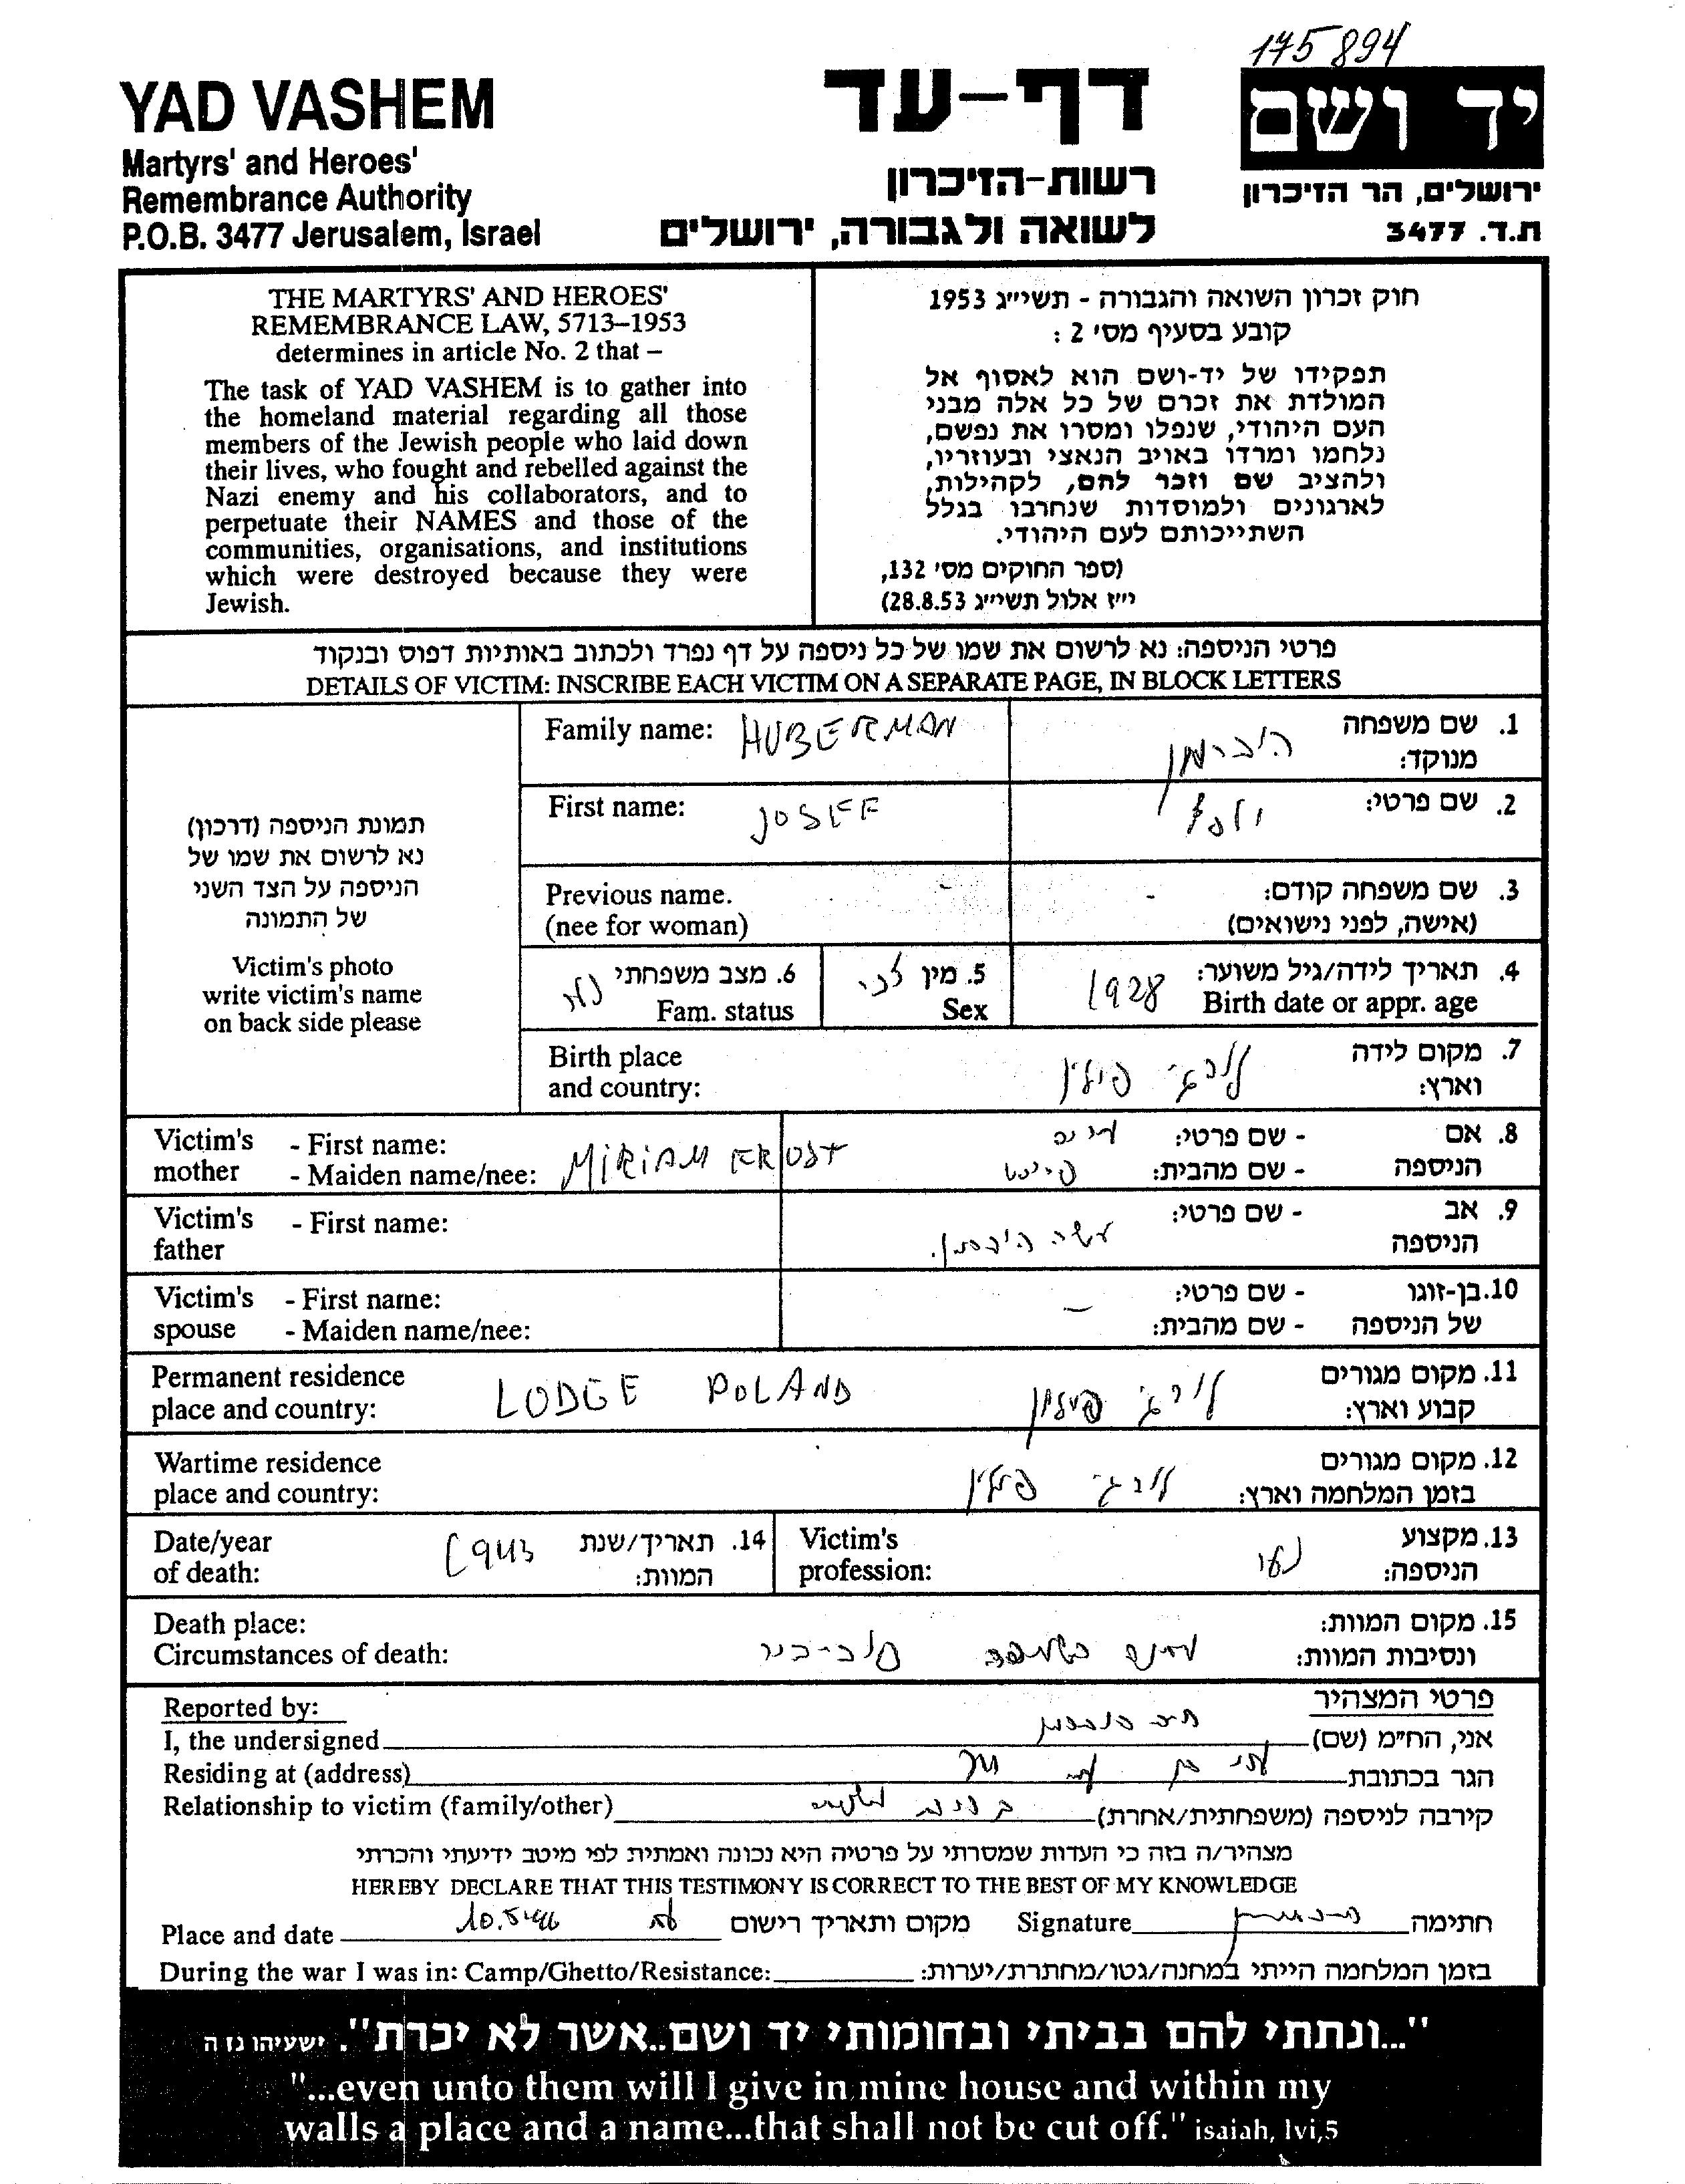 175 894
YAD VASHEM
Martyrs' and Heroes'
Remembrance Authority
P.O.B. 3477 Jerusalem, Israel
דף-עד
רשות-הזיכרון
לשואה ולגבורה, ירושלים
יד ושם
ירושלים, הר הזיכרון
ת.ד. 3477
THE MARTYRS' AND HEROES'
REMEMBRANCE LAW, 5713–1953
determines in article No. 2 that –
The task of YAD VASHEM is to gather into
the homeland material regarding all those
members of the Jewish people who laid down
their lives, who fought and rebelled against the
Nazi enemy and his collaborators, and to
perpetuate their NAMES and those of the
communities, organisations, and institutions
which were destroyed because they were
Jewish.
חוק זכרון השואה והגבורה - תשי״ג 1953
קובע בסעיף מס' 2 :
תפקידו של יד-ושם הוא לאסוף אל
המולדת את זכרם של כל אלה מבני
העם היהודי, שנפלו ומסרו את נפשם,
נלחמו ומרדו באויב הנאצי ובעוזריו,
ולהציב שם וזכר להם, לקהילות,
לארגונים ולמוסדות שנחרבו בגלל
השתייכותם לעם היהודי.
(ספר החוקים מס' 132,
י״ז אלול תשי״ג 28.8.53)
פרטי הניספה: נא לרשום את שמו של כל ניספה על דף נפרד ולכתוב באותיות דפוס ובנקוד
DETAILS OF VICTIM: INSCRIBE EACH VICTIM ON A SEPARATE PAGE, IN BLOCK LETTERS
תמונת הניספה (דרכון)
נא לרשום את שמו של
הניספה על הצד השני
של התמונה
Victim's photo
write victim's name
on back side please
Family name: HUBERMAN
1. שם משפחה
מנוקד: הוברמן
First name: JOSEF
2. שם פרטי: יוסף
Previous name.
(nee for woman)
3. שם משפחה קודם: -
(אישה, לפני נישואים)
4. תאריך לידה/גיל משוער:
Birth date or appr. age 1928
5. מין זכר
Sex
6. מצב משפחתי
Fam. status
Birth place
and country:
7. מקום לידה
וארץ: לודג' פולין
Victim's mother - First name:
- Maiden name/nee: MIRIAM FRUST
8. אם הניספה - שם פרטי:
- שם מהבית:
Victim's father - First name:
9. אב הניספה - שם פרטי: משה הוברמן.
Victim's spouse - First name:
- Maiden name/nee:
10. בן-זוגו של הניספה - שם פרטי: –
- שם מהבית:
Permanent residence
place and country: LODGE POLAND
11. מקום מגורים
קבוע וארץ: לודג' פולין
Wartime residence
place and country:
12. מקום מגורים
בזמן המלחמה וארץ: לודג' פולין
Date/year
of death: 1943
14. תאריך/שנת
המוות:
Victim's
profession:
13. מקצוע
הניספה: נער
Death place:
Circumstances of death:
15. מקום המוות:
ונסיבות המוות:
Reported by:
פרטי המצהיר
I, the undersigned
אני, הח״מ (שם) הוברמן
Residing at (address)
הגר בכתובת
Relationship to victim (family/other)
קירבה לניספה (משפחתית/אחרת)
מצהיר/ה בזה כי העדות שמסרתי על פרטיה היא נכונה ואמתית לפי מיטב ידיעתי והכרתי
HEREBY DECLARE THAT THIS TESTIMONY IS CORRECT TO THE BEST OF MY KNOWLEDGE
Place and date
מקום ותאריך רישום
Signature הוברמן חתימה
During the war I was in: Camp/Ghetto/Resistance:
בזמן המלחמה הייתי במחנה/גטו/מחתרת/יערות:
"...ונתתי להם בביתי ובחומותי יד ושם..אשר לא יכרת". ישעיהו נז ה
"...even unto them will I give in mine house and within my
walls a place and a name...that shall not be cut off." isaiah, lvi,5